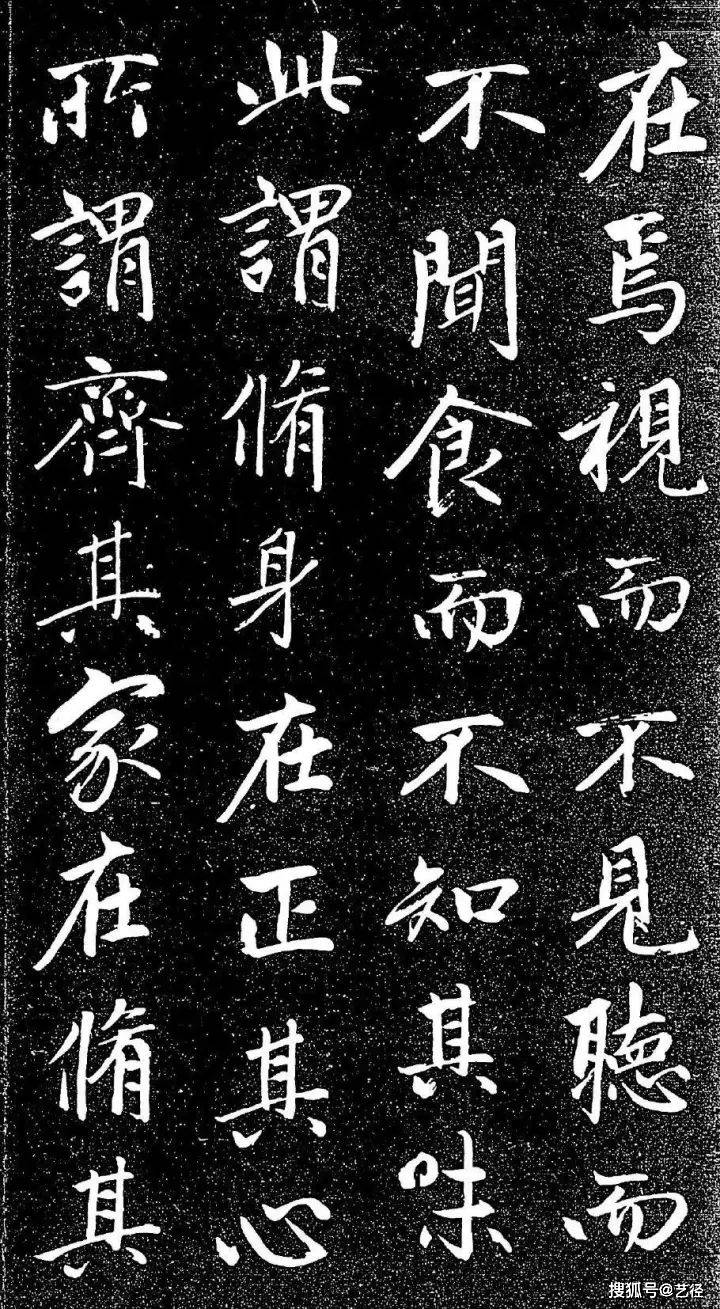 在焉視而不見聽而
不聞食而不知其味
此謂脩身在正其心
所謂齊其家在脩其
搜狐号@艺径